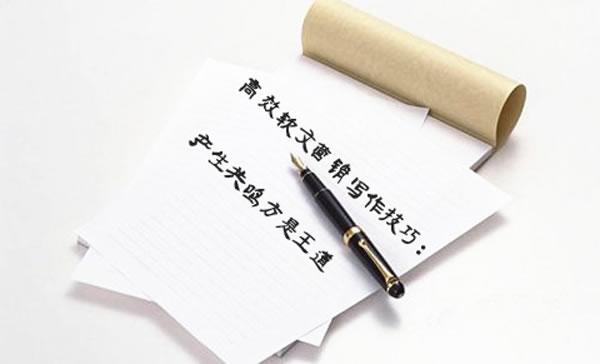 高效软文营销写作技巧：
产生共鸣方是王道